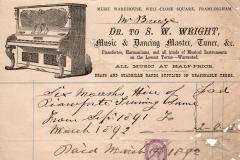 MUSIC WAREHOUSE, WELL-CLOSE SQUARE, FRAMLINGHAM,
Mr
DR. TO S. W. WRIGHT,
Music & Dancing Master, Tuner, &c.
Pianofortes, Harmoniums, and all kinds of Musical Instruments
on the Lowest Terms—Warranted.
ALL MUSIC AT HALF-PRICE.
BRASS AND QUADRILLE BANDS SUPPLIED ON REASONABLE TERMS.
Six Months Hire of
Pianoforte Tuning Same
From Sep 1891 To
March 1892
Paid March 1892